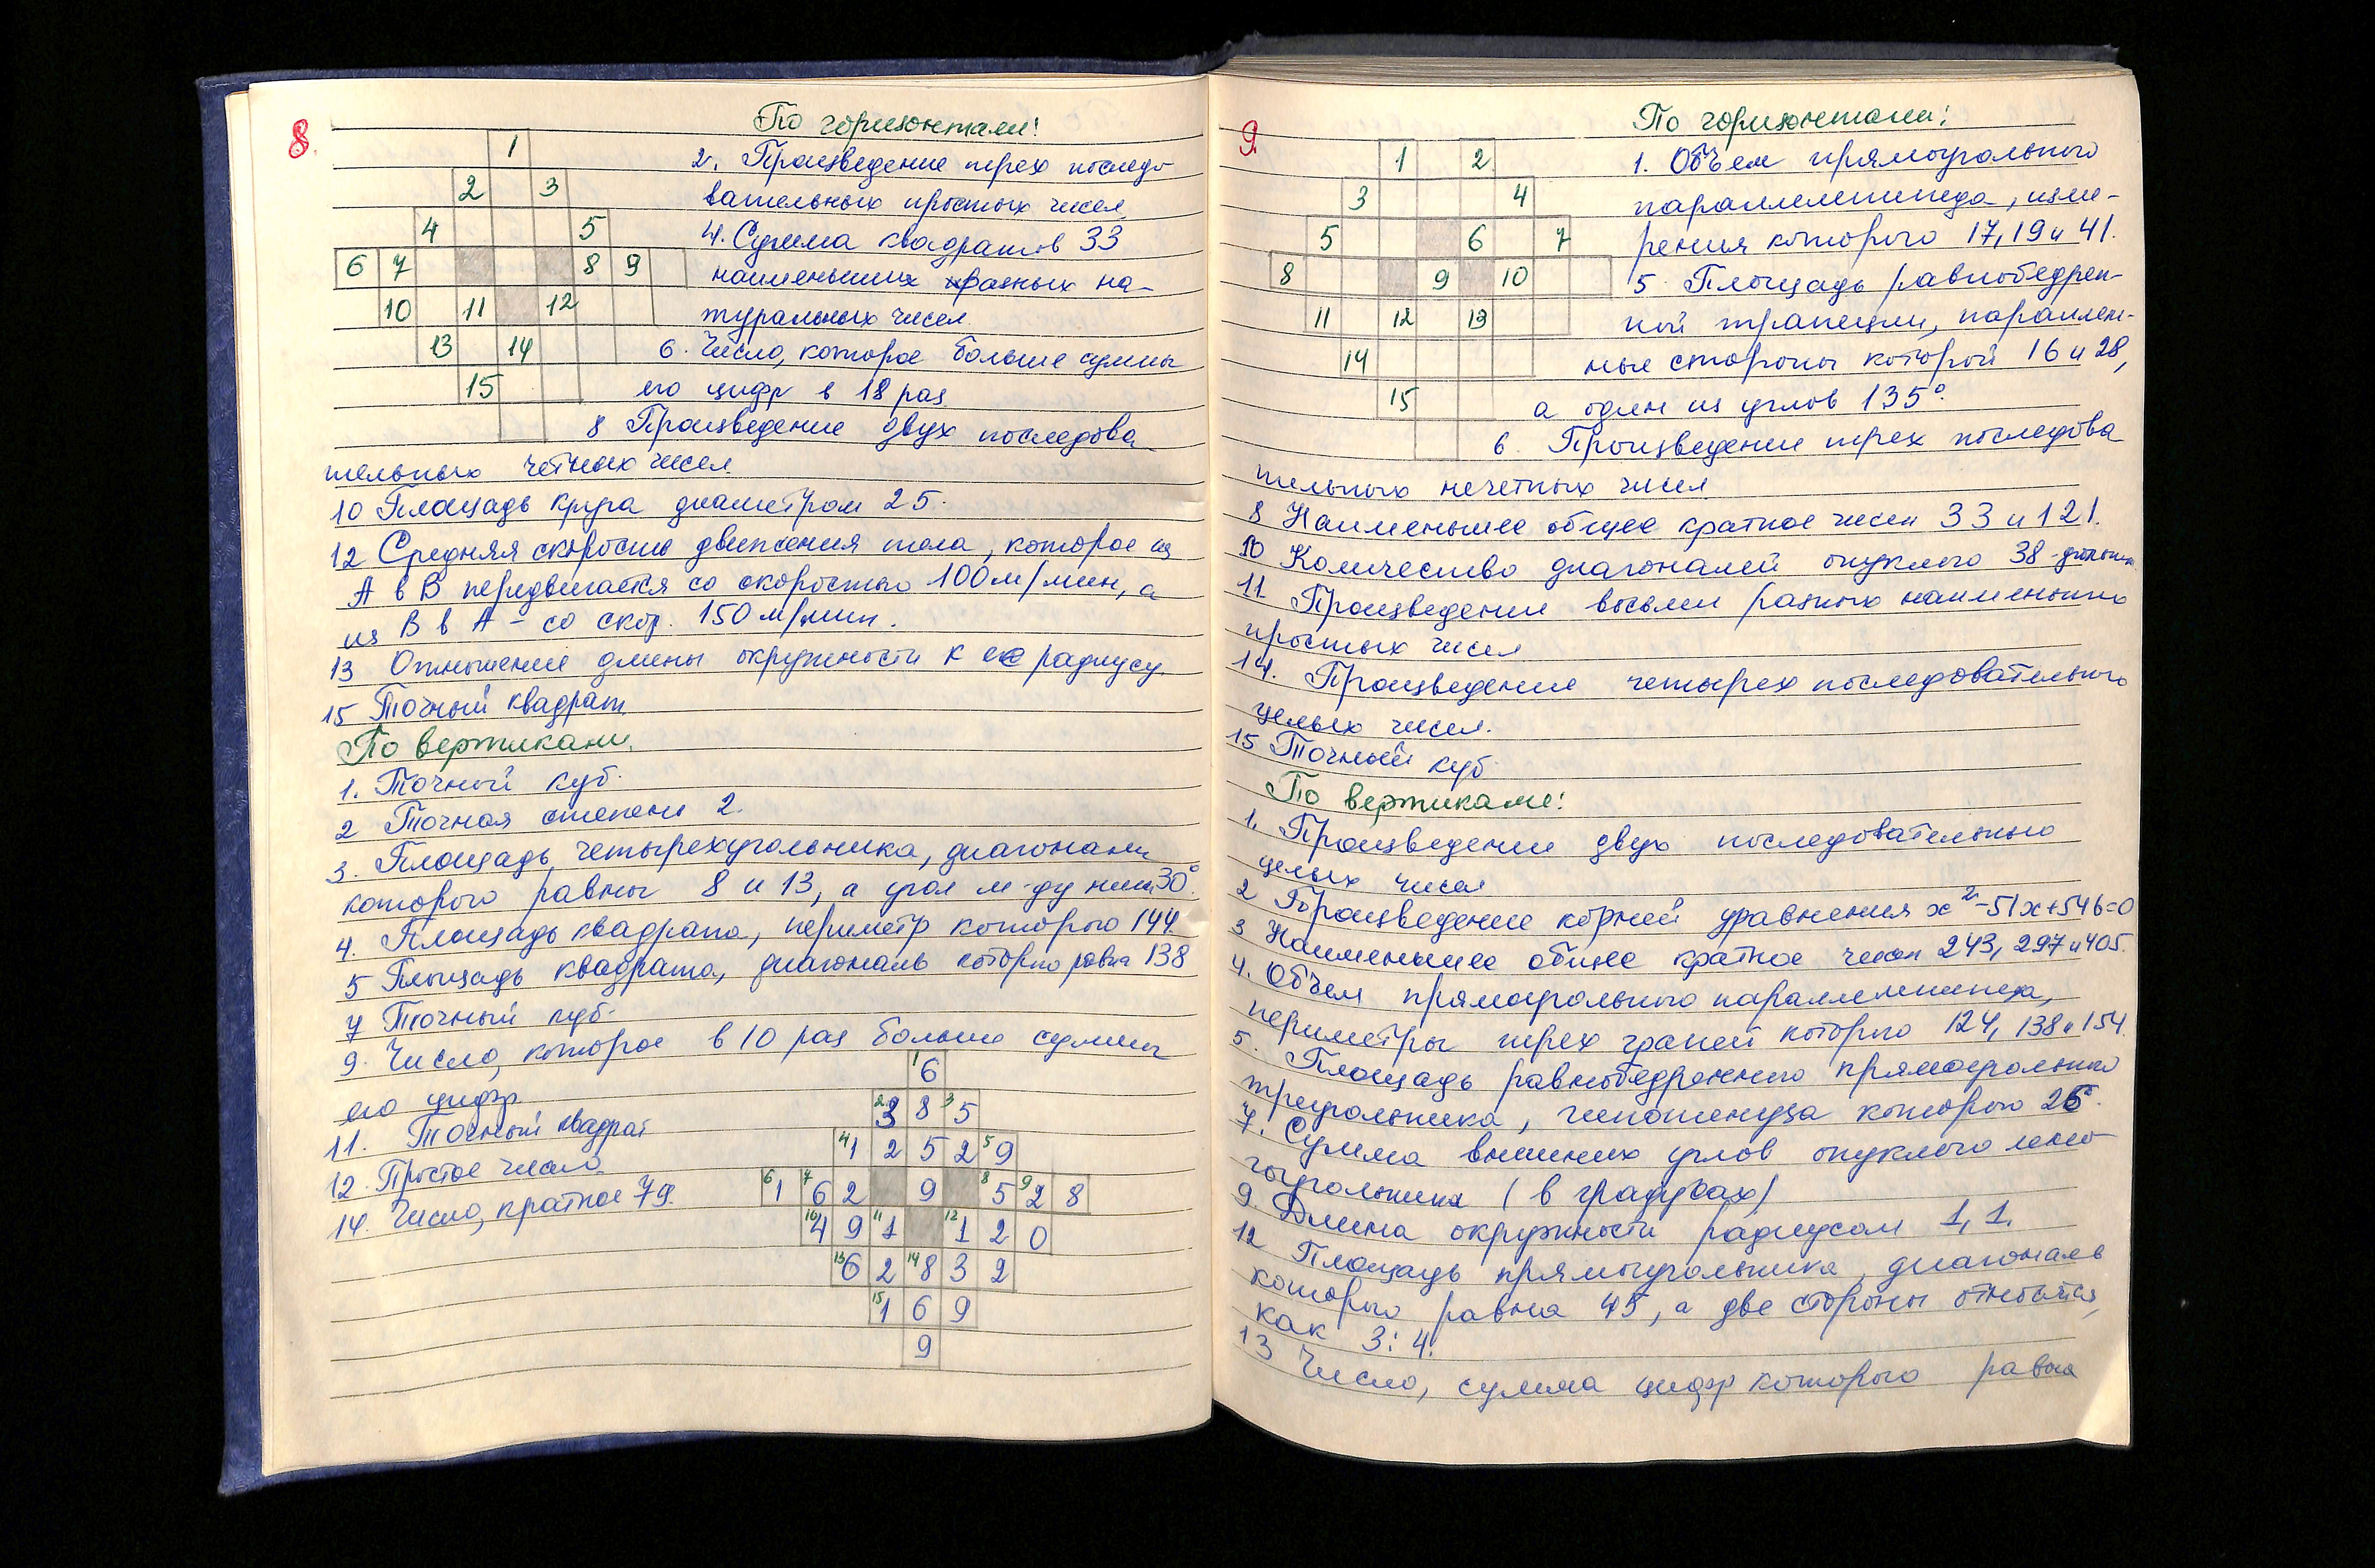 8.
По горизонтали!
1
2. Произведение трех последо
2 3
вательных простых чисел.
4 5
4. Сумма квадратов 33
6 7 8 9
наименьших разных на-
10 11 12
туральных чисел.
13 14
6. Число, которое больше суммы
15
его цифр в 18 раз
8 Произведение двух последова
тельных четных чисел.
10 Площадь круга диаметром 25.
12 Средняя скорость движения тела, которое из
А в В передвигается со скоростью 100 м/мин, а
из В в А - со скор. 150 м/мин.
13 Отношение длины окружности к ее радиусу.
15 Точный квадрат.
По вертикали.
1. Точный куб.
2 Точная степень 2.
3. Площадь четырехугольника, диагонали
которого равны 8 и 13, а угол м-ду ними 30°.
4. Площадь квадрата, периметр которого 144.
5 Площадь квадрата, диагональ которого равна 138
7 Точный куб.
9. Число, которое в 10 раз больше суммы
его цифр.
11. Точный квадрат
12. Простое число.
14. Число, кратное 79.
1 6
2 3 8 3 5
4 1 2 5 2 5 9
6 1 7 6 2 9 8 5 9 2 8
10 4 9 11 1 12 1 2 0
13 6 2 14 8 3 2
15 1 6 9
9
9
По горизонтали!
1 2
1. Объем прямоугольного
3 4
параллелепипеда, изме-
5 6 7
рения которого 17, 19 и 41.
8 9 10
5. Площадь равнобедрен-
11 12 13
ной трапеции, параллель-
14
ные стороны которой 16 и 28,
15
а один из углов 135°.
6. Произведение трех последова
тельных нечетных чисел
8 Наименьшее общее кратное чисел 33 и 121.
10 Количество диагоналей опуклого 38-
11 Произведение восьми разных наименьших
простых чисел
14. Произведение четырех последовательных
целых чисел.
15 Точный куб
По вертикали!
1. Произведение двух последовательных
целых чисел
2 Произведение корней уравнения x²-51x+546=0
3 Наименьшее общее кратное чисел 243, 297 и 405.
4. Объем прямоугольного параллелепипеда,
периметры трех граней которого 124, 138 и 154.
5. Площадь равнобедренного прямоугольного
треугольника, гипотенуза которого 26.
7. Сумма внешних углов опуклого мно-
гоугольника (в градусах)
9. Длина окружности радиусом 1,1.
12 Площадь прямоугольника, диагональ
которого равна 45, а две стороны относятся,
как 3:4.
13 Число, сумма цифр которого равна